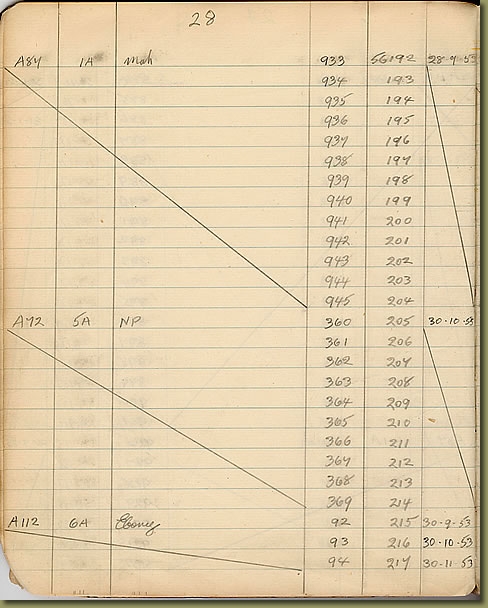 28
A84 1A Mah 933 56192 28-9-53
934 193
935 194
936 195
937 196
938 197
939 198
940 199
941 200
942 201
943 202
944 203
945 204
A72 5A NP 360 205 30-10-53
361 206
362 207
363 208
364 209
365 210
366 211
367 212
368 213
369 214
A112 6A Ebony 92 215 30-9-53
93 216 30-10-53
94 217 30-11-53